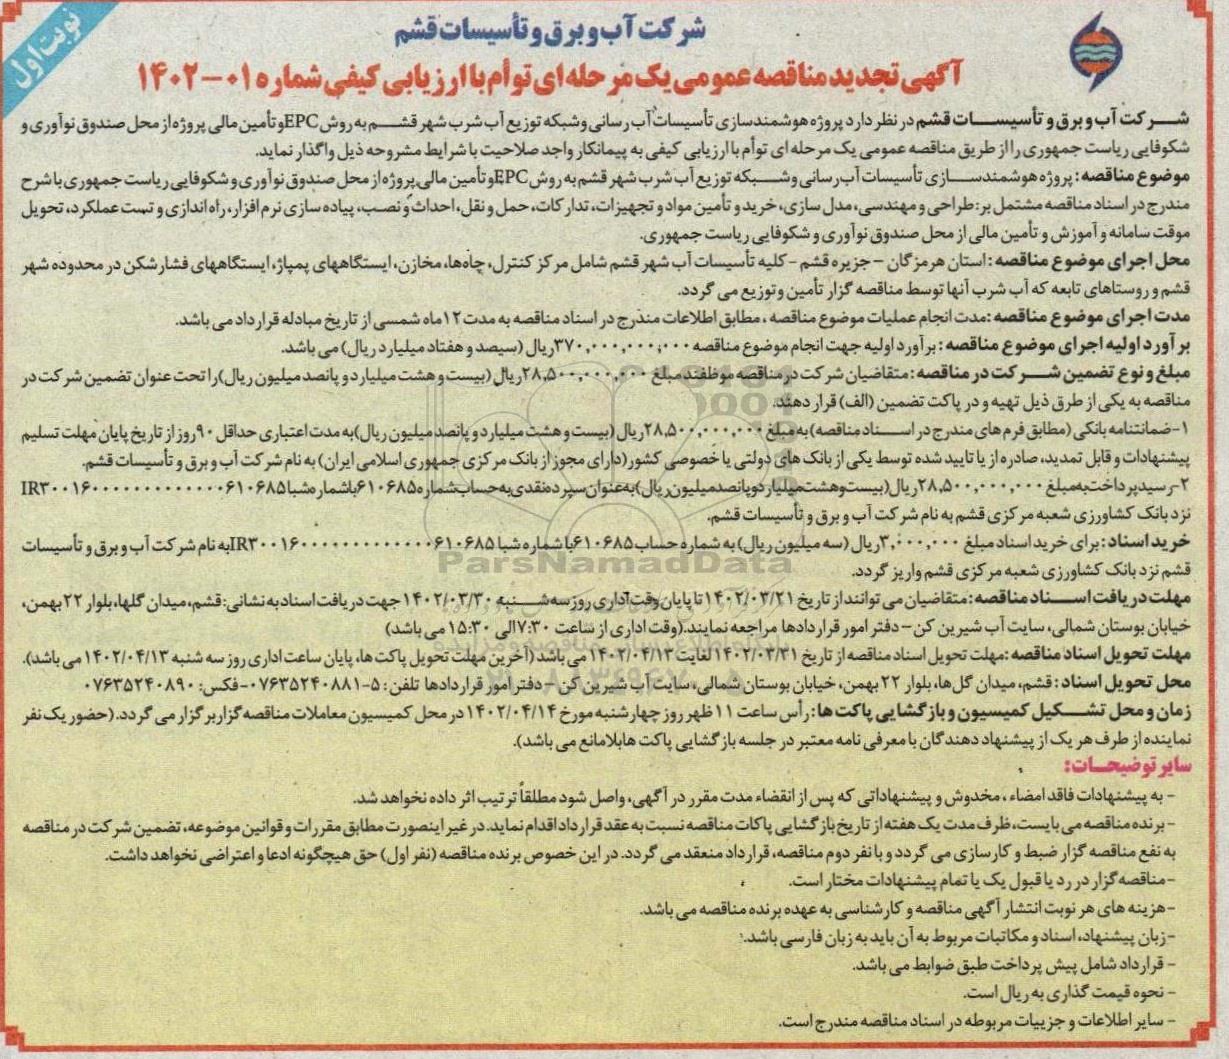 نوبت اول
شرکت آب و برق و تأسیسات قشم
آگهی تجدید مناقصه عمومی یک مرحله ای توأم با ارزیابی کیفی شماره ۰۱-۱۴۰۲
شرکت آب و برق و تأسیسات قشم در نظر دارد پروژه هوشمندسازی تأسیسات آب رسانی و شبکه توزیع آب شرب شهر قشم به روش EPC و تأمین مالی پروژه از محل صندوق نوآوری و
شکوفایی ریاست جمهوری را از طریق مناقصه عمومی یک مرحله ای توأم با ارزیابی کیفی به پیمانکار واجد صلاحیت با شرایط مشروحه ذیل واگذار نماید.
موضوع مناقصه: پروژه هوشمندسازی تأسیسات آب رسانی و شبکه توزیع آب شرب شهر قشم به روش EPC و تأمین مالی پروژه از محل صندوق نوآوری و شکوفایی ریاست جمهوری با شرح
مندرج در اسناد مناقصه مشتمل بر: طراحی و مهندسی، مدل سازی، خرید و تأمین مواد و تجهیزات، تدارکات، حمل و نقل، احداث و نصب، پیاده سازی نرم افزار، راه اندازی و تست عملکرد، تحویل
موقت سامانه و آموزش و تأمین مالی از محل صندوق نوآوری و شکوفایی ریاست جمهوری.
محل اجرای موضوع مناقصه: استان هرمزگان – جزیره قشم - کلیه تأسیسات آب شهر قشم شامل مرکز کنترل، چاه‌ها، مخازن، ایستگاههای پمپاژ، ایستگاههای فشارشکن در محدوده شهر
قشم و روستاهای تابعه که آب شرب آنها توسط مناقصه گزار تأمین و توزیع می گردد.
مدت اجرای موضوع مناقصه: مدت انجام عملیات موضوع مناقصه، مطابق اطلاعات مندرج در اسناد مناقصه به مدت ۱۲ ماه شمسی از تاریخ مبادله قرارداد می باشد.
برآورد اولیه اجرای موضوع مناقصه: برآورد اولیه جهت انجام موضوع مناقصه ۳۷۰,۰۰۰,۰۰۰,۰۰۰ ریال (سیصد و هفتاد میلیارد ریال) می باشد.
مبلغ و نوع تضمین شرکت در مناقصه: متقاضیان شرکت در مناقصه موظفند مبلغ ۲۸,۵۰۰,۰۰۰,۰۰۰ ریال (بیست و هشت میلیارد و پانصد میلیون ریال) را تحت عنوان تضمین شرکت در
مناقصه به یکی از طرق ذیل تهیه و در پاکت تضمین (الف) قرار دهند.
۱-ضمانتنامه بانکی (مطابق فرم های مندرج در اسناد مناقصه) به مبلغ ۲۸,۵۰۰,۰۰۰,۰۰۰ ریال (بیست و هشت میلیارد و پانصد میلیون ریال) به مدت اعتباری حداقل ۹۰ روز از تاریخ پایان مهلت تسلیم
پیشنهادات و قابل تمدید، صادره از یا تایید شده توسط یکی از بانک های دولتی یا خصوصی کشور (دارای مجوز از بانک مرکزی جمهوری اسلامی ایران) به نام شرکت آب و برق و تأسیسات قشم.
۲-رسید پرداخت به مبلغ ۲۸,۵۰۰,۰۰۰,۰۰۰ ریال (بیست و هشت میلیارد و پانصد میلیون ریال) به عنوان سپرده نقدی به حساب شماره ۶۱۰۶۸۵ با شماره شبا IR۳۰۰۱۶۰۰۰۰۰۰۰۰۰۰۰۰۰۰۶۱۰۶۸۵
نزد بانک کشاورزی شعبه مرکزی قشم به نام شرکت آب و برق و تأسیسات قشم.
خرید اسناد: برای خرید اسناد مبلغ ۳,۰۰۰,۰۰۰ ریال (سه میلیون ریال) به شماره حساب ۶۱۰۶۸۵ با شماره شبا IR۳۰۰۱۶۰۰۰۰۰۰۰۰۰۰۰۰۰۰۶۱۰۶۸۵ به نام شرکت آب و برق و تأسیسات
قشم نزد بانک کشاورزی شعبه مرکزی قشم واریز گردد.
ParsNamadData
مهلت دریافت اسناد مناقصه: متقاضیان می توانند از تاریخ ۱۴۰۲/۰۳/۲۱ تا پایان وقت اداری روز سه شنبه ۱۴۰۲/۰۳/۳۰ جهت دریافت اسناد به نشانی: قشم، میدان گلها، بلوار ۲۲ بهمن،
خیابان بوستان شمالی، سایت آب شیرین کن – دفتر امور قراردادها مراجعه نمایند. (وقت اداری از ساعت ۷:۳۰ الی ۱۵:۳۰ می باشد)
مهلت تحویل اسناد مناقصه: مهلت تحویل اسناد مناقصه از تاریخ ۱۴۰۲/۰۳/۳۱ لغایت ۱۴۰۲/۰۴/۱۳ می باشد (آخرین مهلت تحویل پاکت ها، پایان ساعت اداری روز سه شنبه ۱۴۰۲/۰۴/۱۳ می باشد).
محل تحویل اسناد: قشم، میدان گل‌ها، بلوار ۲۲ بهمن، خیابان بوستان شمالی، سایت آب شیرین کن – دفتر امور قراردادها تلفن: ۵-۰۷۶۳۵۲۴۰۸۸۱-فکس: ۰۷۶۳۵۲۴۰۸۹۰
زمان و محل تشکیل کمیسیون و بازگشایی پاکت ها: رأس ساعت ۱۱ ظهر روز چهارشنبه مورخ ۱۴۰۲/۰۴/۱۴ در محل کمیسیون معاملات مناقصه گزار برگزار می گردد. (حضور یک نفر
نماینده از طرف هر یک از پیشنهاد دهندگان با معرفی نامه معتبر در جلسه بازگشایی پاکت ها بلامانع می باشد).
سایر توضیحات:
- به پیشنهادات فاقد امضاء، مخدوش و پیشنهاداتی که پس از انقضاء مدت مقرر در آگهی، واصل شود مطلقاً ترتیب اثر داده نخواهد شد.
- برنده مناقصه می بایست، ظرف مدت یک هفته از تاریخ بازگشایی پاکات مناقصه نسبت به عقد قرارداد اقدام نماید. در غیر اینصورت مطابق مقررات و قوانین موضوعه، تضمین شرکت در مناقصه
به نفع مناقصه گزار ضبط و کارسازی می گردد و با نفر دوم مناقصه، قرارداد منعقد می گردد. در این خصوص برنده مناقصه (نفر اول) حق هیچگونه ادعا و اعتراضی نخواهد داشت.
- مناقصه گزار در رد یا قبول یک یا تمام پیشنهادات مختار است.
- هزینه های هر نوبت انتشار آگهی مناقصه و کارشناسی به عهده برنده مناقصه می باشد.
- زبان پیشنهاد، اسناد و مکاتبات مربوط به آن باید به زبان فارسی باشد.
- قرارداد شامل پیش پرداخت طبق ضوابط می باشد.
- نحوه قیمت گذاری به ریال است.
- سایر اطلاعات و جزییات مربوطه در اسناد مناقصه مندرج است.